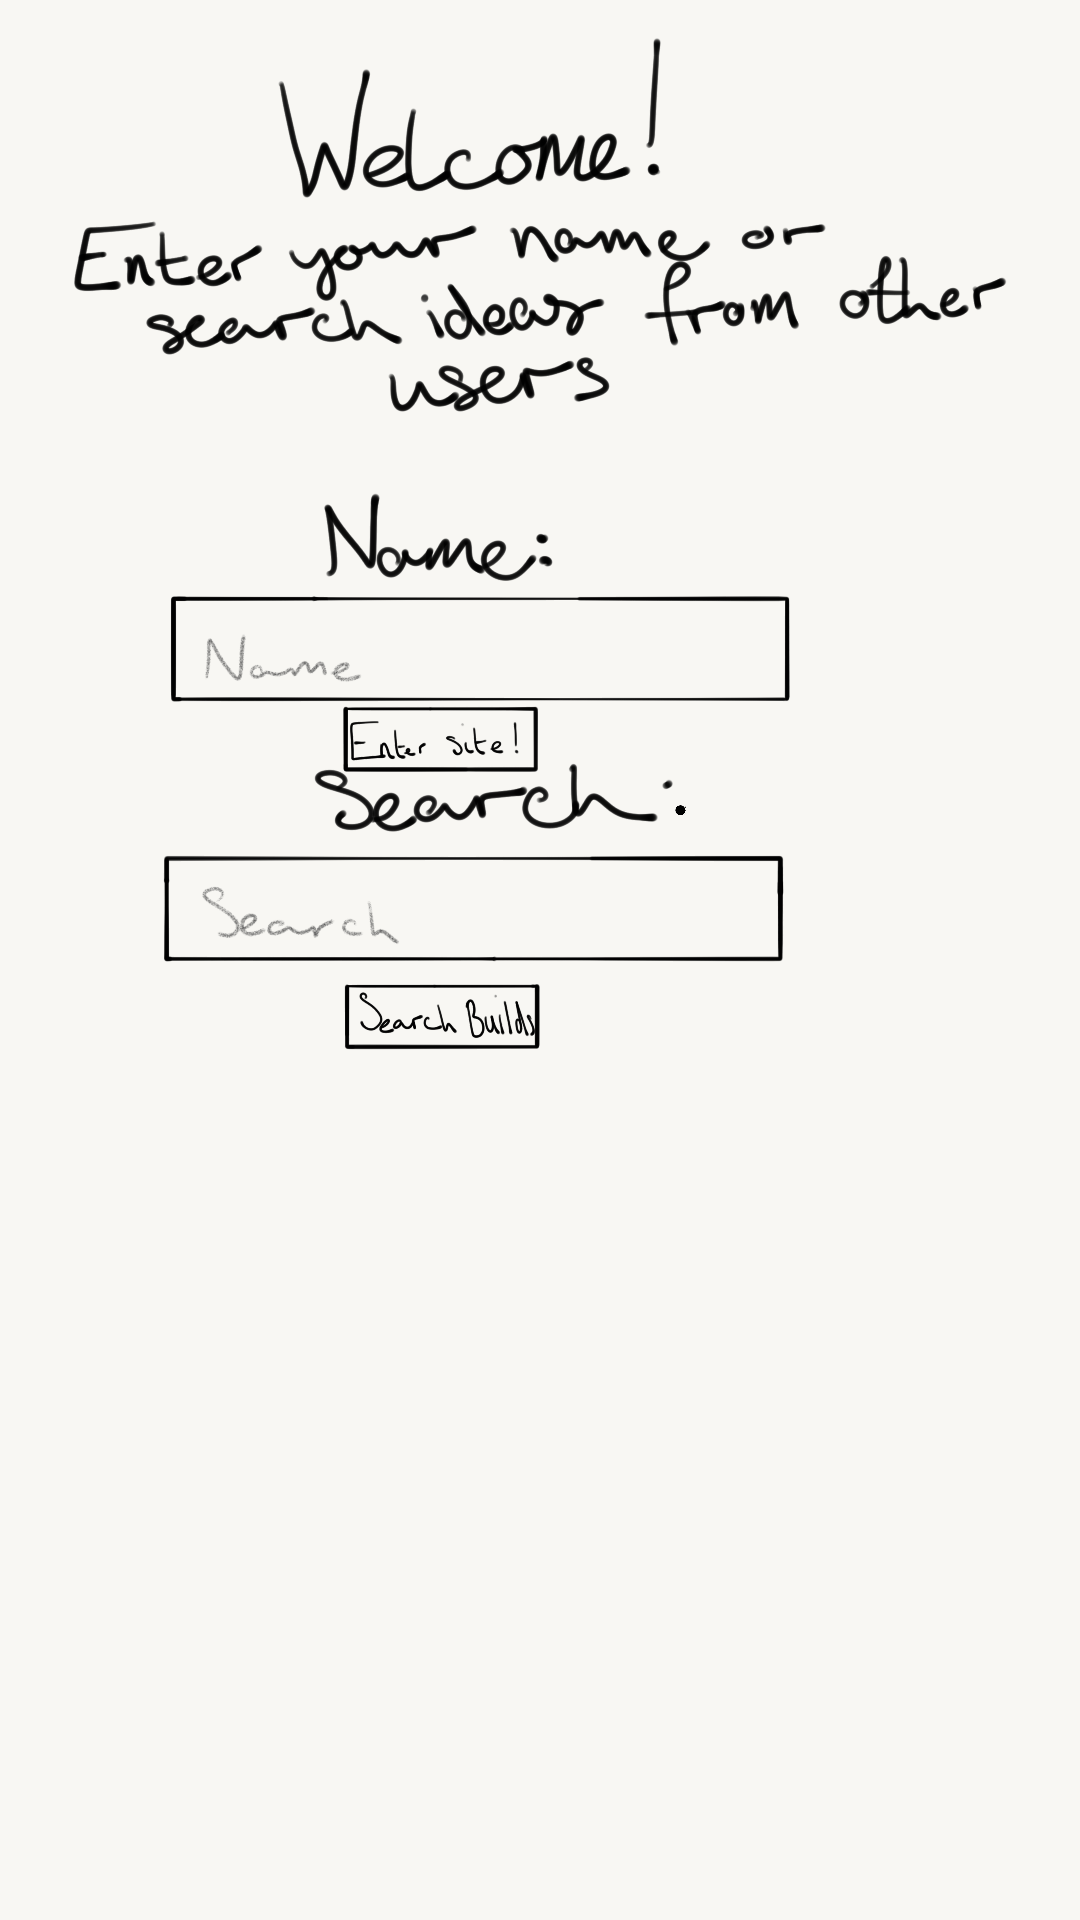 Welcome!
Enter your name or
search ideas from other
users
Name:
Name
Enter site!
Search:
Search
Search Builds